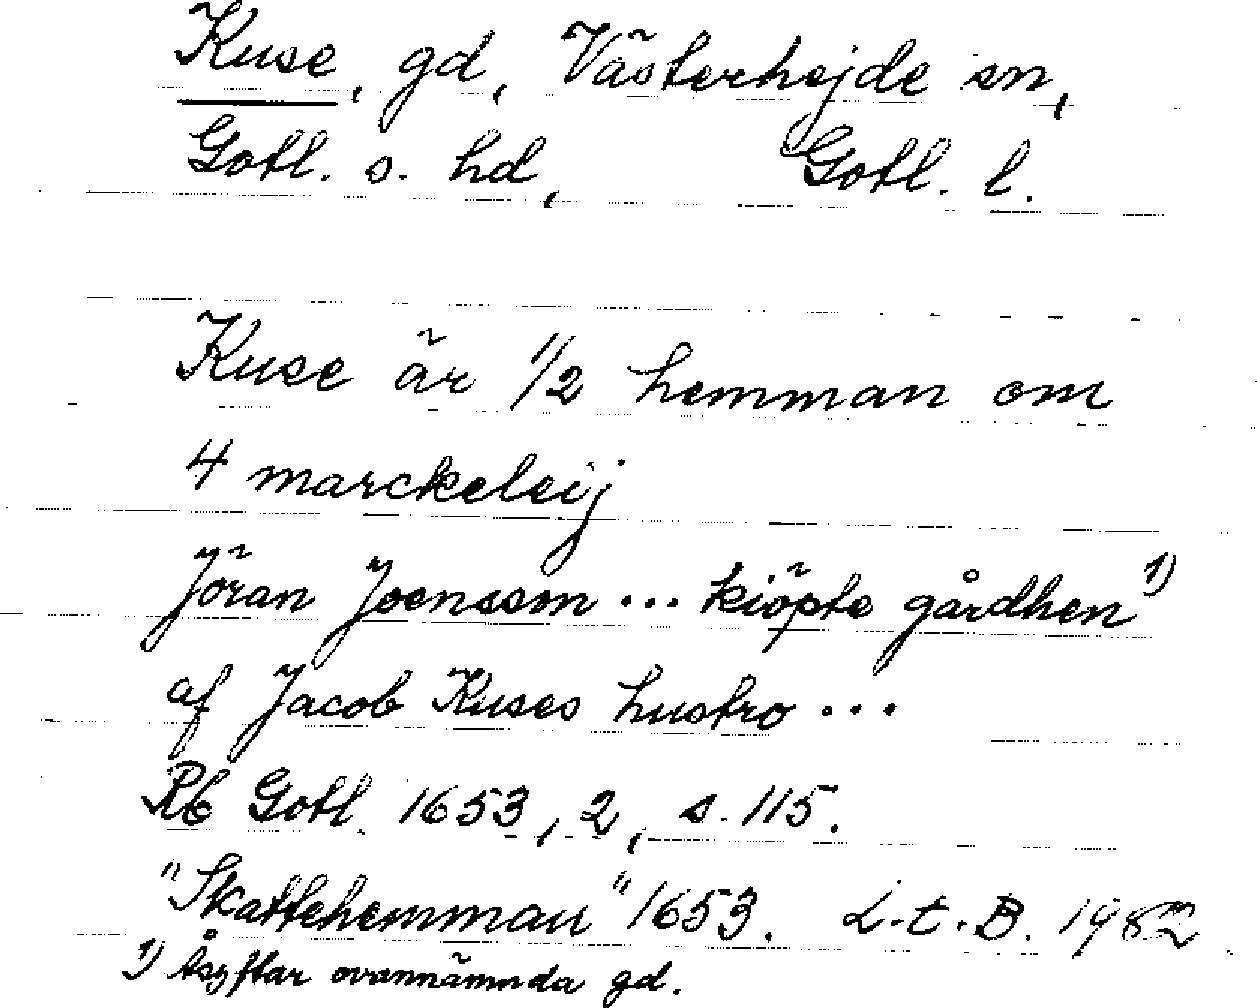 Kuse, gd, Västerhejde sn,
Gotl. s. hd, Gotl. l.
Kuse är 1/2 hemman om
4 marckeleij
Jöran Joensson ... kiöpte gårdhen 1)
af Jacob Kuses hustro ...
Rb Gotl. 1653, 2, s. 115.
"Skattehemman" 1653. L.t.B. 1982
1) Åsyftar ovannämnda gd.